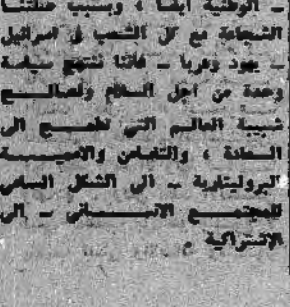 ـ الوطنية ايضا ، وبسبب صلتنا
الشجاعة مع كل الشعب في اسرائيل
ـ يهود وعربا ـ فاننا ننتهج سياسة
وحدة من اجل السلام ولصالـــــح
شبيبة العالـم التي تطمـــح الى
السعادة ، والتضامن والامميـــــة
البروليتارية ـ الى الشكل السامي
للمجتمـــع الانســــــاني ـ الى
الاشتراكية .